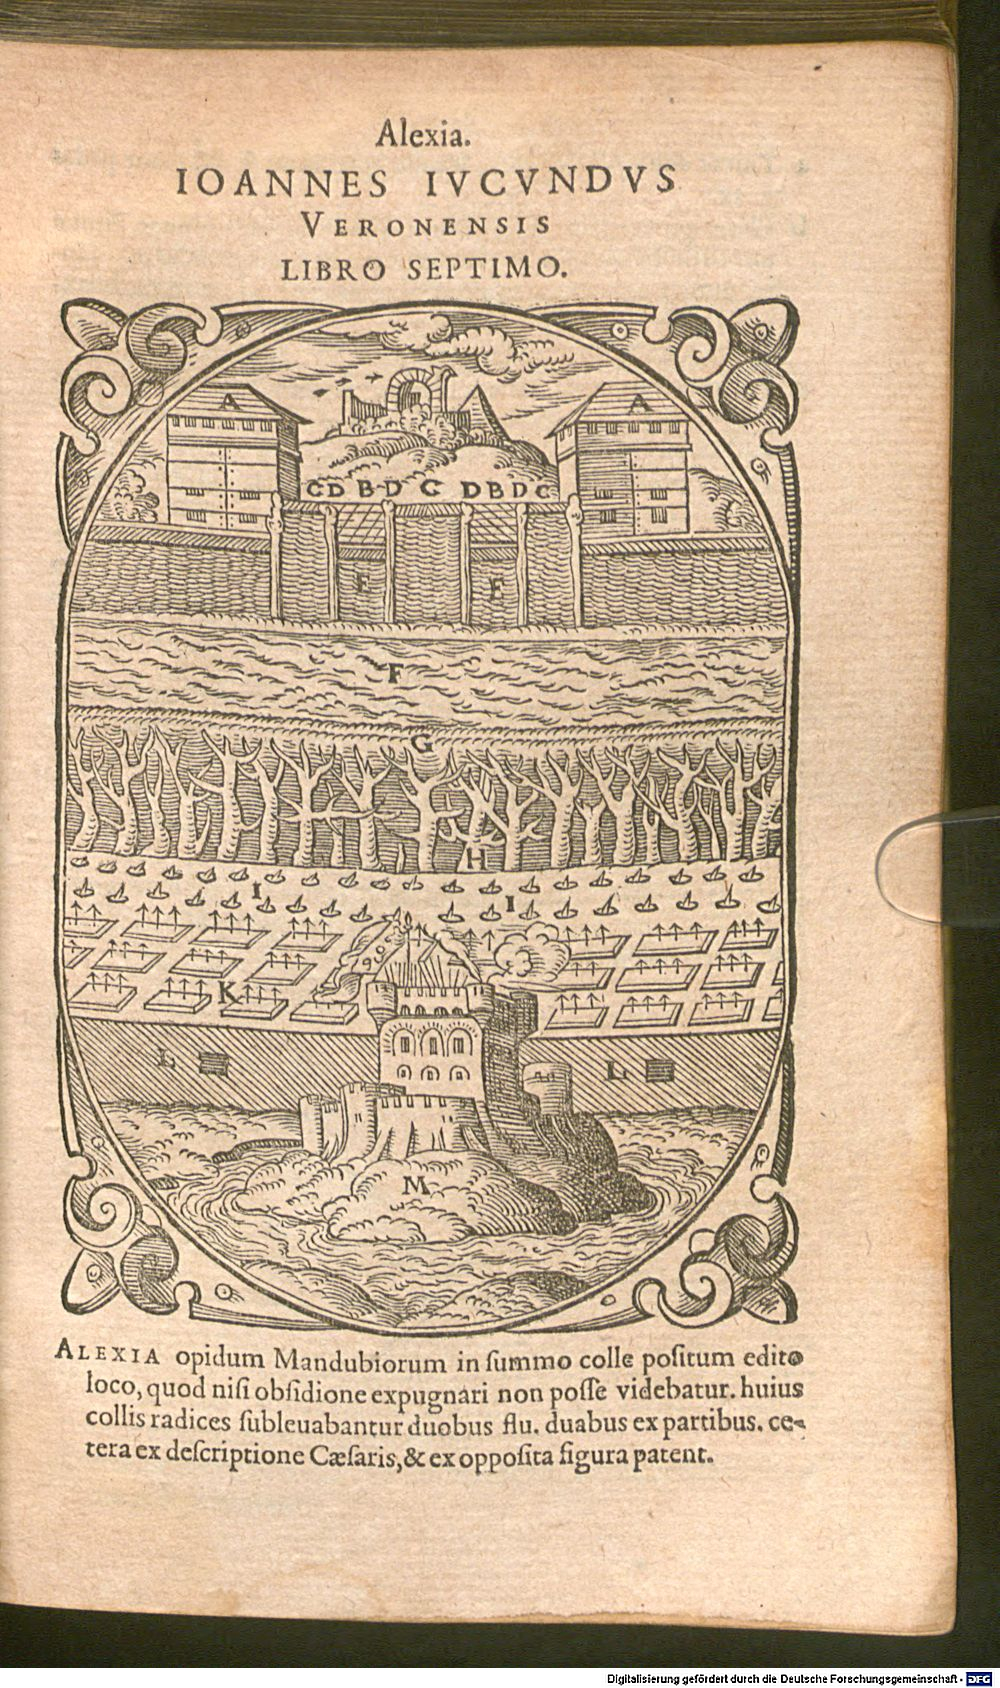 Alexia.
IOANNES IVCVNDVS
VERONENSIS
LIBRO SEPTIMO.
A A
C D B D C D B D C
E E
F
G
H
I I
K
L L
M
ALEXIA opidum Mandubiorum in ſummo colle poſitum edito
loco, quod niſi obſidione expugnari non poſſe videbatur. huius
collis radices ſubleuabantur duobus flu. duabus ex partibus. ce-
tera ex deſcriptione Cæſaris, & ex oppoſita figura patent.
Digitalisierung gefördert durch die Deutsche Forschungsgemeinschaft - DFG